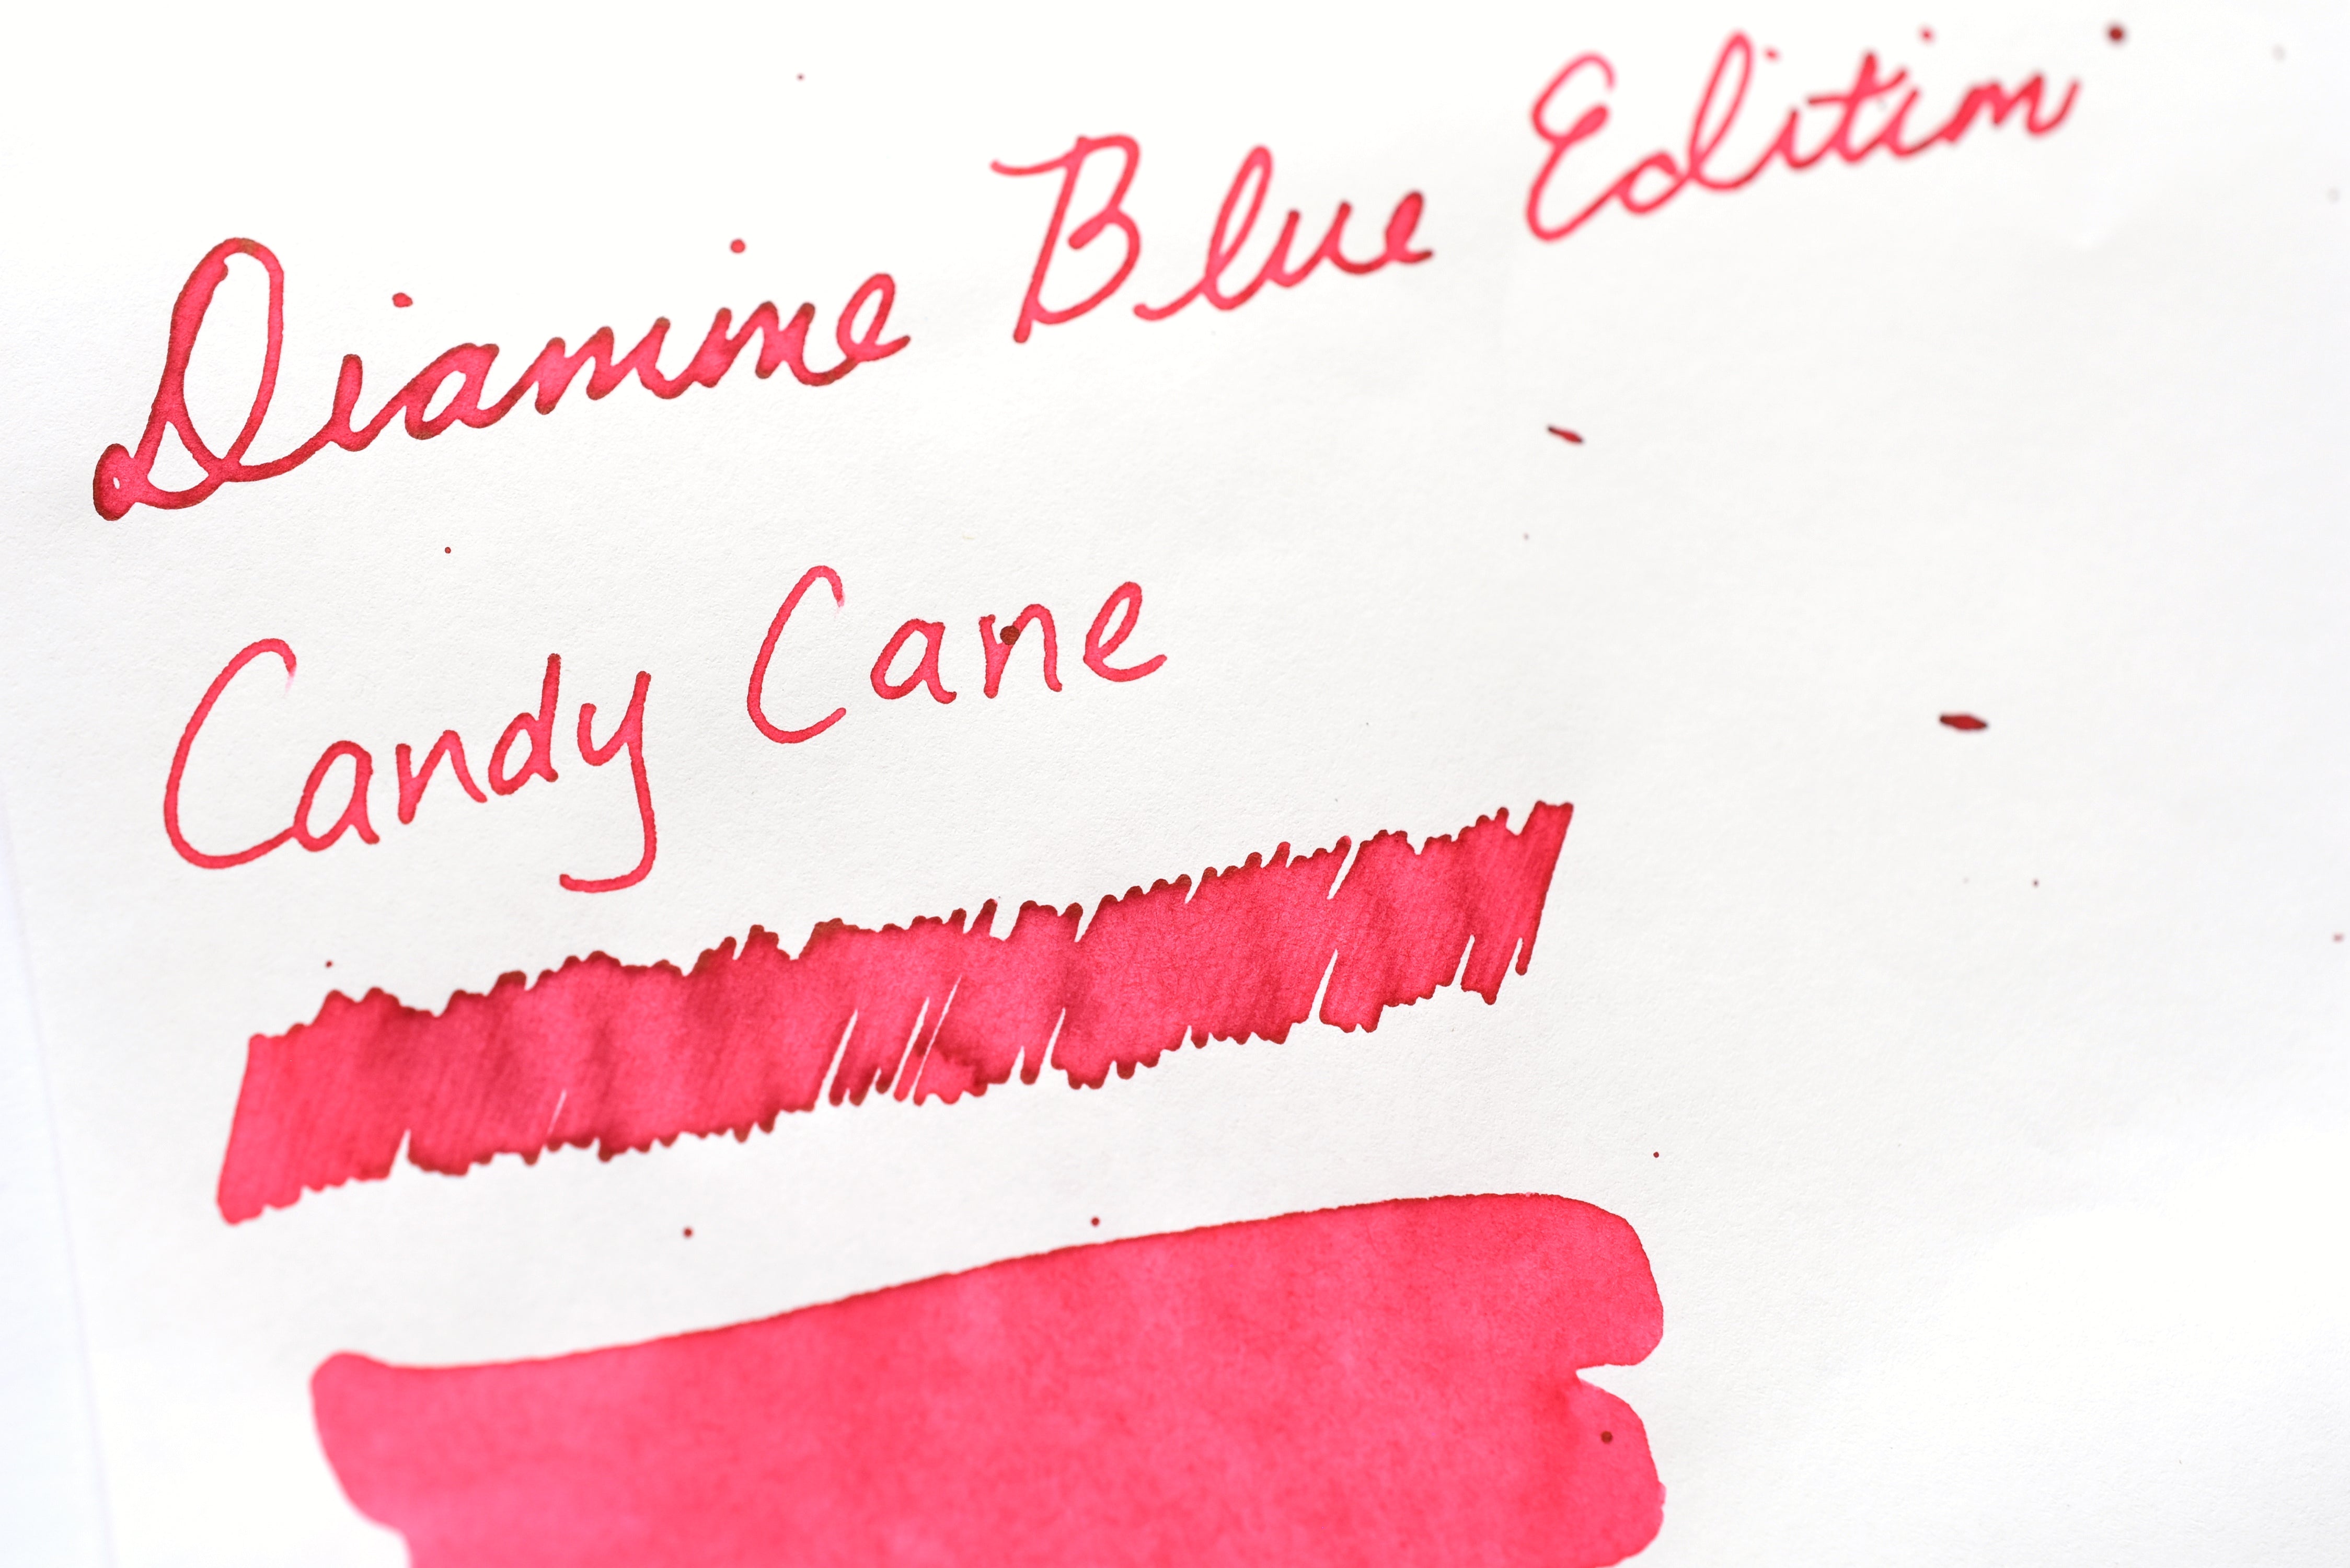 Diamine Blue Edition
Candy Cane